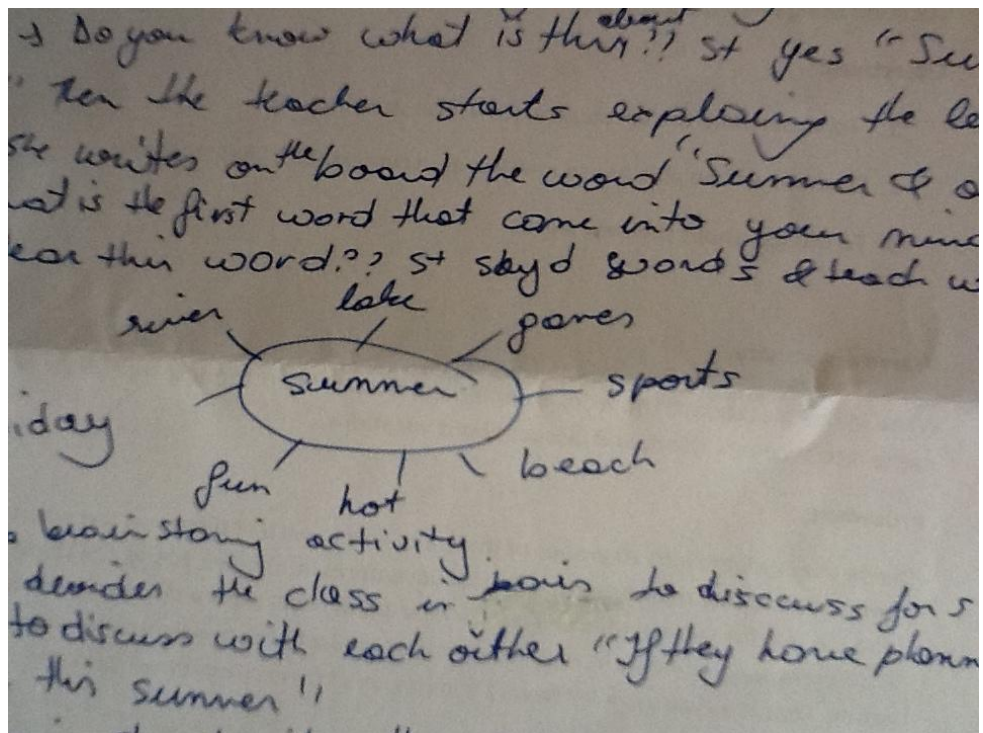 Do you know what is this?? about St yes "Su
" then the teacher starts explaing the le
She writes on the board the word "Summer & a
at is the first word that come into your mind
ear this word?? St sayd words & teach w
river lake games
summer sports
iday
fun hot beach
brainstoming activity.
devides the class in pairs to disccuss for 5
to discuss with each oither "If they have plann
this summer"